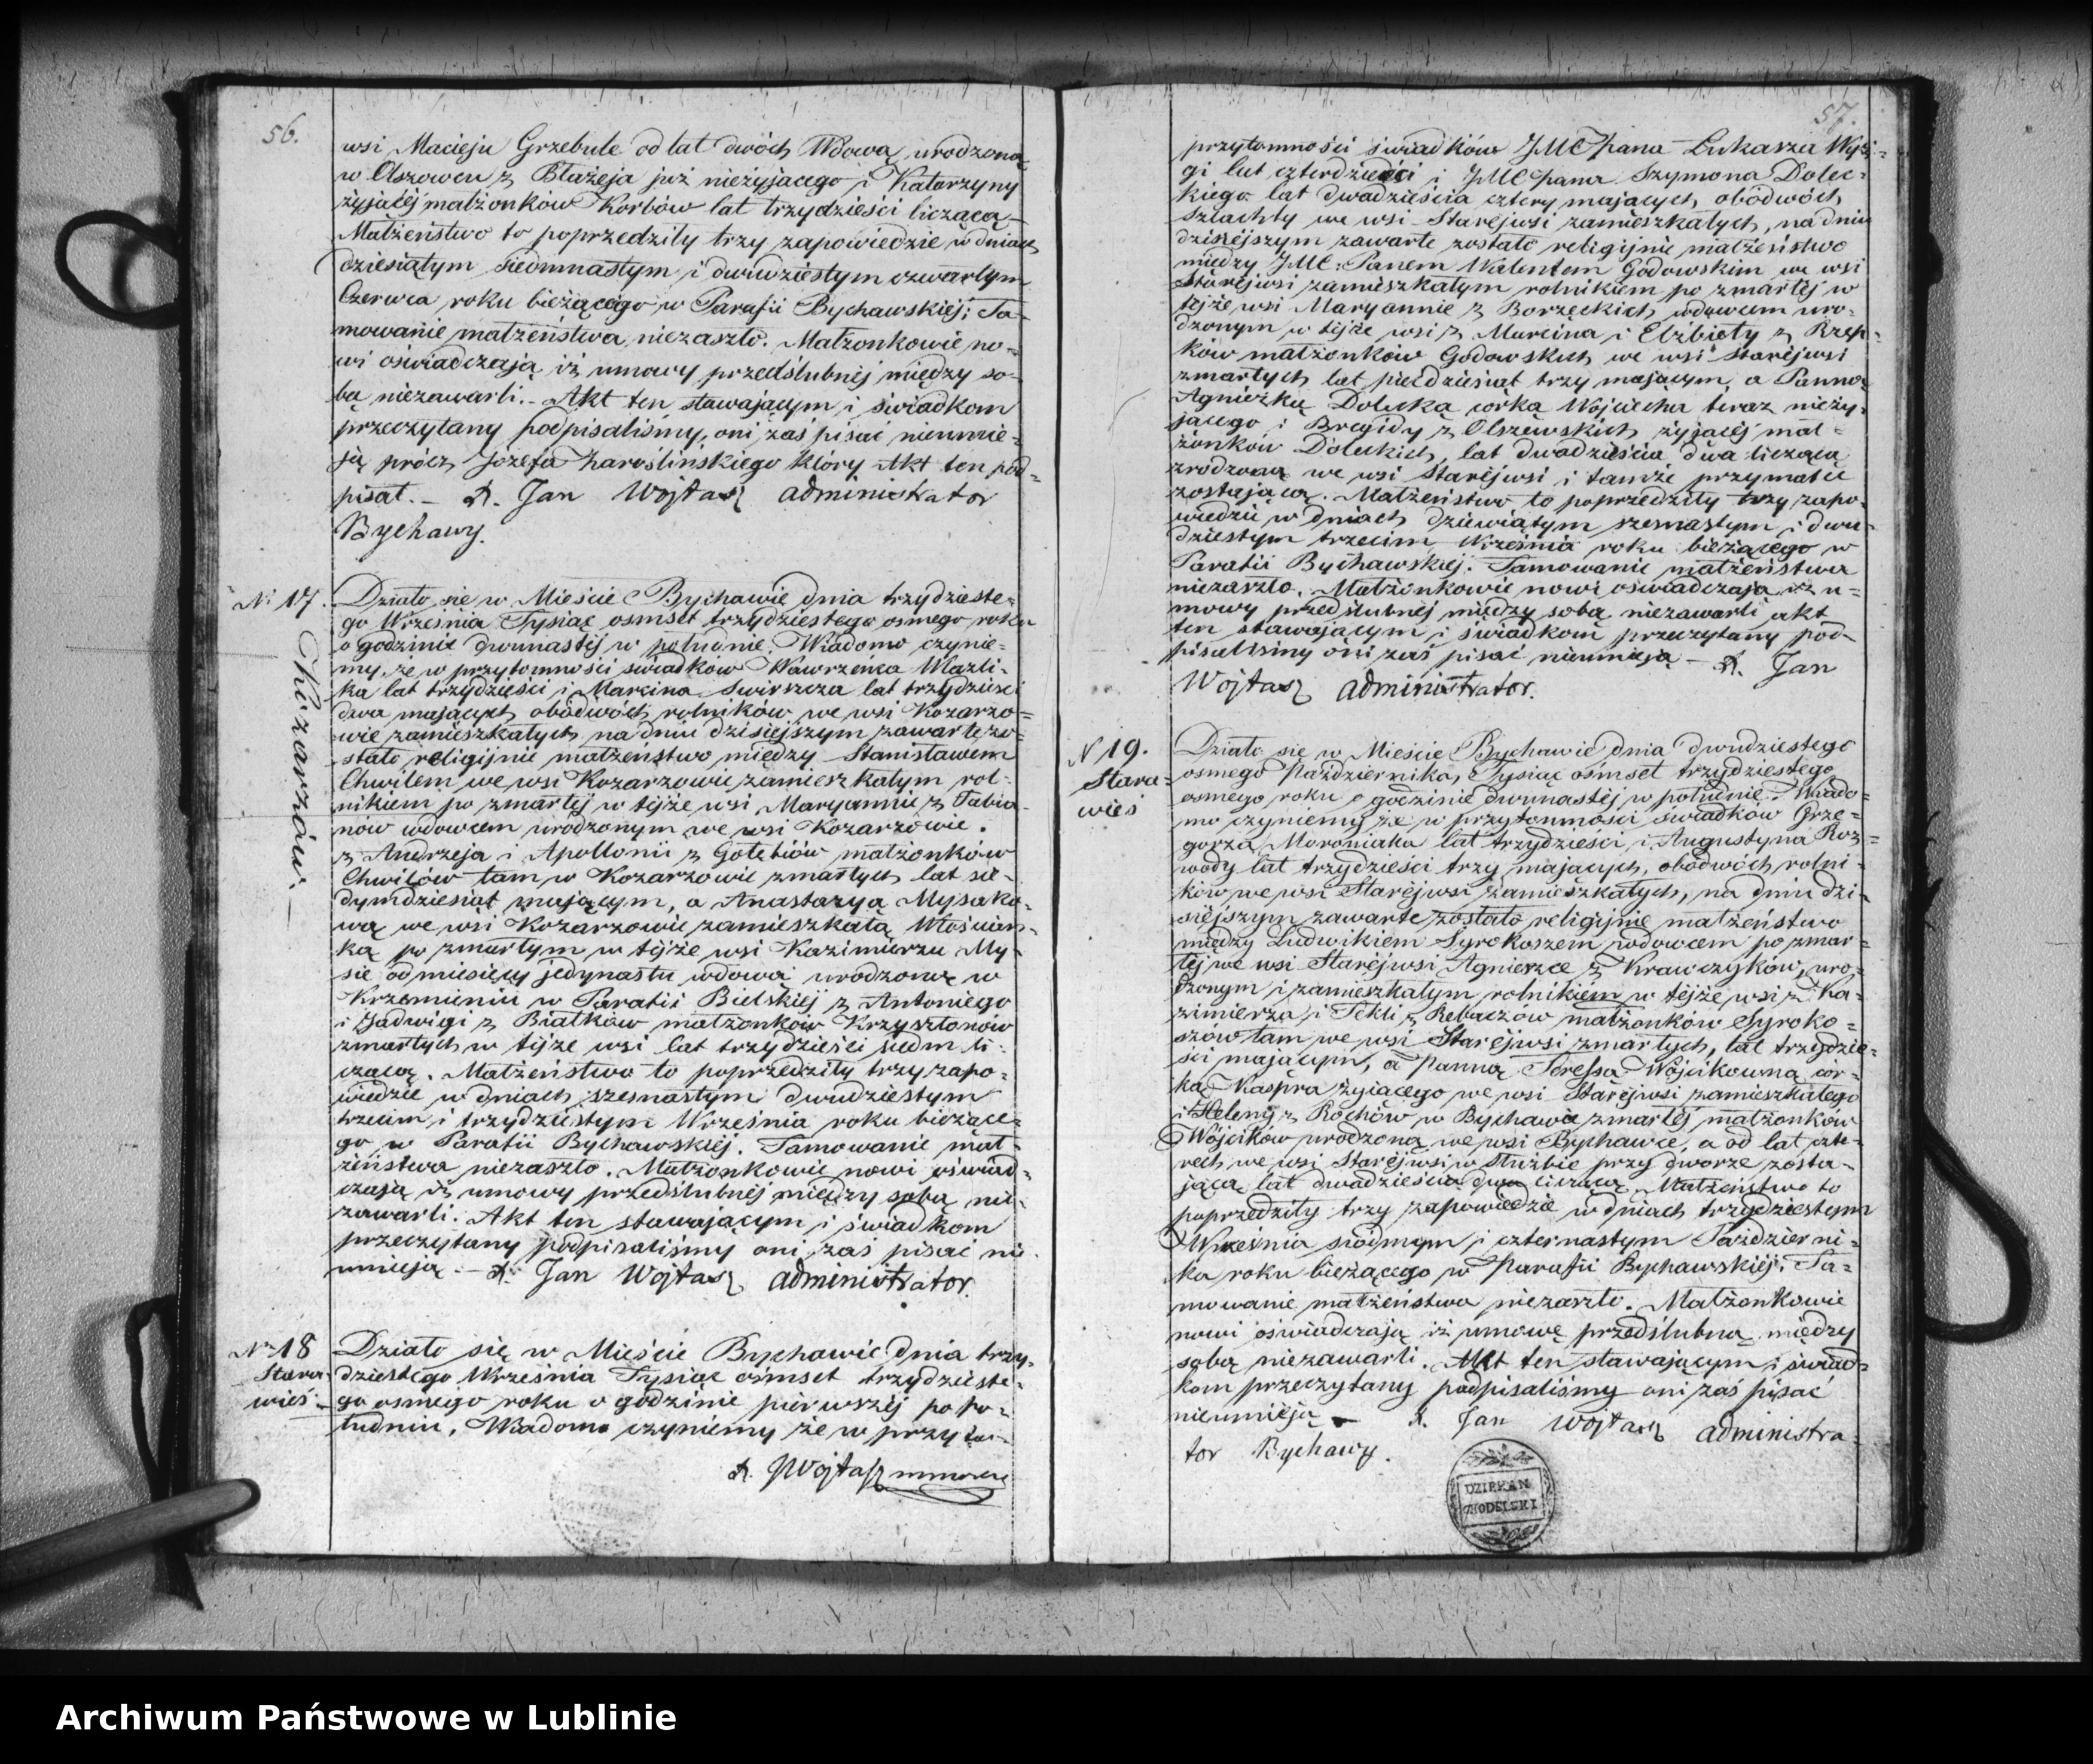 56.
wsi Macieju Grzebule od lat dwóch Wdową urodzoną
w Olszowcu z Błażeja już nieżyjącego i Katarzyny
żyjącéj małżonków Korbów lat trzydzieści liczącą –
Małżeństwo to poprzedziły trzy zapowiedzie w dniach
dziesiątym siedmnastym i dwudziestym czwartym
Czerwca roku bieżącego w Parafii Bychawskiéj; Ta-
mowanie małżeństwa niezaszło. Małżonkowie no-
wi oświadczają iż umowy przedślubnéj między so-
bą niezawarli. – Akt ten stawającym i świadkom
przeczytany podpisaliśmy, oni zaś pisać nieumie-
ją prócz Józefa Zaroślinskiego który Akt ten pod-
pisał. – X. Jan Wójtasz administrator
Bychawy.
N. 17.
Kozarzów.
Działo się w Mieście Bychawie dnia trzydzieste-
go Września Tysiąc osmset trzydziestego osmego roku
o godzinie dwunastéj w południe. Wiadomo czynie-
my, że w przytomności świadków Wawrzenca Wlazli-
ka lat trzydzieści i Marcina Swirszcza lat trzydzieści
dwa mających obódwóch rolników we wsi Kozarzo-
wie zamieszkałych na dniu dzisiejszym zawarte zo-
stało religijnie małżeństwo między Stanisławem
Chwilem we wsi Kozarzowie zamieszkałym rol-
nikiem po zmarłéj w téjże wsi Maryannie z Fabia-
nów wdowcem urodzonym we wsi Kozarzowie.
z Andrzeja i Apollonii z Gołębiów małżonków
Chwilów tam w Kozarzowie zmarłych lat sie-
dymdziesiąt mającym, a Anastazyą Mysako-
wą we wsi Kozarzowie zamieszkałą Włościan-
ką po zmarłym w téjże wsi Kazimierzu My-
sie od miesięcy jedynastu wdową urodzoną w
Krzemieniu w Parafii Bielskiéj z Antoniego
i Jadwigi z Białków małżonków Krzysztonów
zmarłych w téjże wsi lat trzydzieści siedm li-
czącą. Małżeństwo to poprzedziły trzy zapo-
wiedzie w dniach szesnastym dwudziestym
trzecim i trzydziestym Września roku bieżące-
go w Parafii Bychawskiéj. Tamowanie mał-
żeństwa niezaszło. Małżonkowie nowi oświad-
czają iż umowy przedślubnéj między sobą nie-
zawarli. Akt ten stawającym i świadkom
przeczytany podpisaliśmy oni zaś pisać nie
umieją. – X. Jan Wójtasz administrator.
N. 18
Stara-
wieś –
Działo się w Mieście Bychawie dnia trzy-
dziestego Września Tysiąc ośmset trzydzieste-
go osmego roku o godzinie pierwszéj po po-
łudniu. Wiadomo czyniemy że w przyto-
X. JWójtasz
57.
przytomności świadków JMC Pana Łukasza Wysi-
gi lat czterdzieści i JMC Pana Szymona Dolec-
kiego lat dwadzieścia cztery mających obódwóch
Szlachty we wsi Staréjwsi zamieszkałych, na dniu
dzisiejszym zawarte zostało religijnie małżeństwo
między JMC: Panem Walentem Godowskim we wsi
Staréjwsi zamieszkałym rolnikiem po zmarłéj w
téjże wsi Maryannie z Borzęckich, wdowcem uro-
dzonym w téjże wsi z Marcina i Elżbiety z Rzep-
ków małżonków Godowskich we wsi Staréjwsi
zmarłych lat piećdziesiąt trzy mającym, a Panną
Agnieżką Dolecką córką Wojciecha teraz nieży-
jącego i Brygidy z Olszewskich, żyjącéj mał-
żonków Doleckich, lat dwadzieścia dwa liczącą
zrodzoną we wsi Staréjwsi i tamże przy matce
zostającą. Małżeństwo to poprzedziły trzy zapo-
wiedzie w dniach dziewiątym szesnastym i dwu-
dziestym trzecim Września roku bieżącego w
Parafii Bychawskiéj. Tamowanie małżeństwa
niezaszło. Małżonkowie nowi oświadczają iż u-
mowy przedślubnéj między sobą niezawarli akt
ten stawającym i świadkom przeczytany pod-
pisaliśmy oni zaś pisać nieumieją – X. Jan
Wójtasz administrator.
N 19.
Stara-
wieś
Działo się w Mieście Bychawie dnia dwudziestego
osmego Października, Tysiąc ośmset trzydziestego
osmego roku o godzinie dwunastéj w południe. Wiado-
mo czyniemy że w przytomności świadków Grze-
gorza Moroniaka lat trzydzieści i Augustyna Roz-
wody lat trzydzieści trzy mających, obódwóch rolni-
ków we wsi Staréjwsi zamieszkałych, na dniu dzi-
siéjszym zawarte zostało religijnie małżeństwo
między Ludwikiem Syrokoszem wdowcem po zmar-
łéj we wsi Staréjwsi Agnieszce z Krawczyków, uro-
dzonym i zamieszkałym rolnikiem w téjże wsi z Ka-
zimierza i Tekli z Rebaczów małżonków Syroko-
szów tam we wsi Staréjwsi zmarłych, lat trzydzie-
ści mającym, a Panną Teressą Wójcikowną cór-
ką Kaspra żyiącego we wsi Staréjwsi zamieszkałego
i Heleny z Rochów w Bychawie zmarłéj małżonków
Wójcików urodzoną we wsi Bychawce, a od lat czte-
rech we wsi Staréjwsi w służbie przy dworze zosta-
jącą, lat dwadzieścia dwa liczącą. Małżeństwo to
poprzedziły trzy zapowiedzie w dniach trzydziestym
Września siódmym i czternastym Październi-
ka roku bieżącego w Parafii Bychawskiéj. Ta-
mowanie małżeństwa niezaszło. Małżonkowie
nowi oświadczają iż umowę przedślubną między
sobą niezawarli. Akt ten stawającym i świad-
kom przeczytany podpisaliśmy oni zaś pisać
nieumieją – X. Jan Wójtasz administra-
tor Bychawy.
DZIEKAN
Archiwum Państwowe w Lublinie